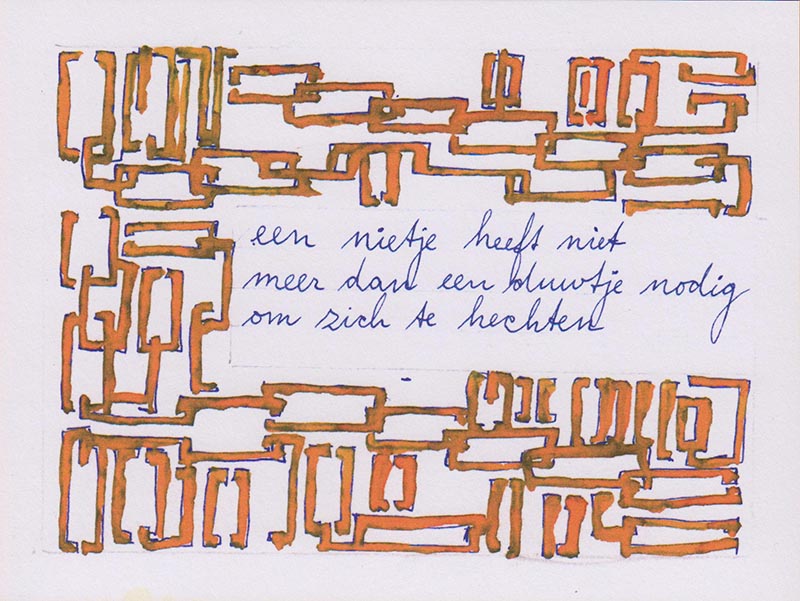 een nietje heeft niet
meer dan een duwtje nodig
om zich te hechten